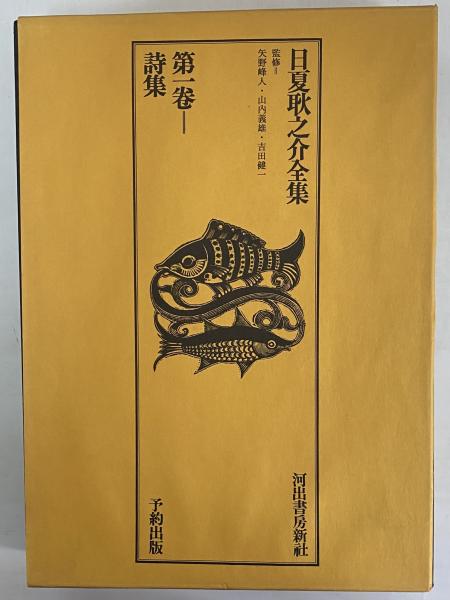 日夏耿之介全集
監修=
矢野峰人・山内義雄・吉田健一
第一巻―
詩集
河出書房新社
予約出版